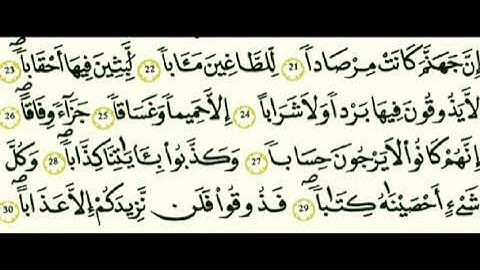 إِنَّ جَهَنَّمَ كَانَتْ مِرْصَاداً 21 لِّلطَّاغِينَ مَـَٔاباً 22 لَّٰبِثِينَ فِيهَا أَحْقَاباً 23
لَّا يَذُوقُونَ فِيهَا بَرْداً وَلَا شَرَاباً 24 إِلَّا حَمِيماً وَغَسَّاقاً 25 جَزَآءً وِفَاقاً 26
إِنَّهُمْ كَانُوا۟ لَا يَرْجُونَ حِسَاباً 27 وَكَذَّبُوا۟ بِـَٔايَٰتِنَا كِذَّاباً 28 وَكُلَّ
شَىْءٍ أَحْصَيْنَٰهُ كِتَٰباً 29 فَذُوقُوا۟ فَلَن نَّزِيدَكُمْ إِلَّا عَذَاباً 30